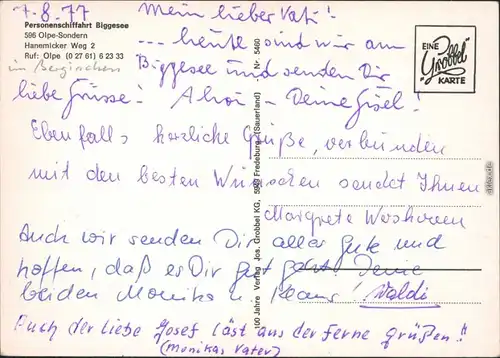 7.8.77
Personenschiffahrt Biggesee
596 Olpe-Sondern
Hanemicker Weg 2
Ruf: Olpe (0 27 61) 6 23 33
im Bergischen
Mein lieber Vati!
... heute sind wir am
Biggesee und senden Dir
liebe Grüsse! Ahoi - Deine Gisel!
Ebenfalls herzliche Grüße, verbunden
mit den besten Wünschen sendet Ihnen
Margrete
Auch wir senden Dir alles Gute und
hoffen, daß es Dir gut geht Deine
beiden Monika u. Klaus! Waldi
Auch der liebe Josef läst aus der Ferne grüßen!!
(Monikas Vater)
160 Jahre Verlag Jos. Grobbel KG, 5948 Fredeburg (Sauerland) Nr. 5480
EINE
Grobbel
KARTE